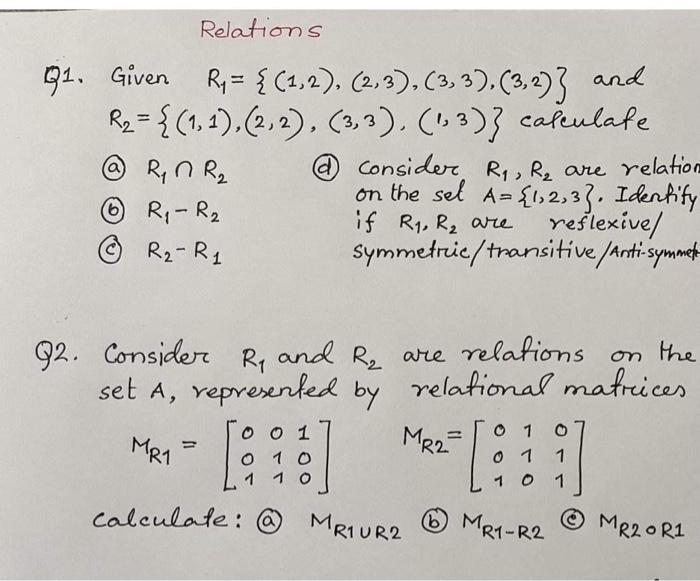 Relations
Q1. Given R₁ = { (1,2), (2,3), (3,3), (3,2)} and
R₂ = { (1,1), (2,2), (3,3), (1,3)} calculate
ⓐ R₁ ∩ R₂
ⓑ R₁ - R₂
ⓒ R₂ - R₁
ⓓ Consider R₁, R₂ are relation
on the set A = {1,2,3}. Identify
if R₁, R₂ are reflexive/
symmetric/transitive/Anti-symmet
Q2. Consider R₁ and R₂ are relations on the
set A, represented by relational matrices
M_R1 = [0 0 1
0 1 0
1 1 0]
M_R2 = [0 1 0
0 1 1
1 0 1]
calculate: ⓐ M_R1∪R2 ⓑ M_R1-R2 ⓒ M_R2∘R1